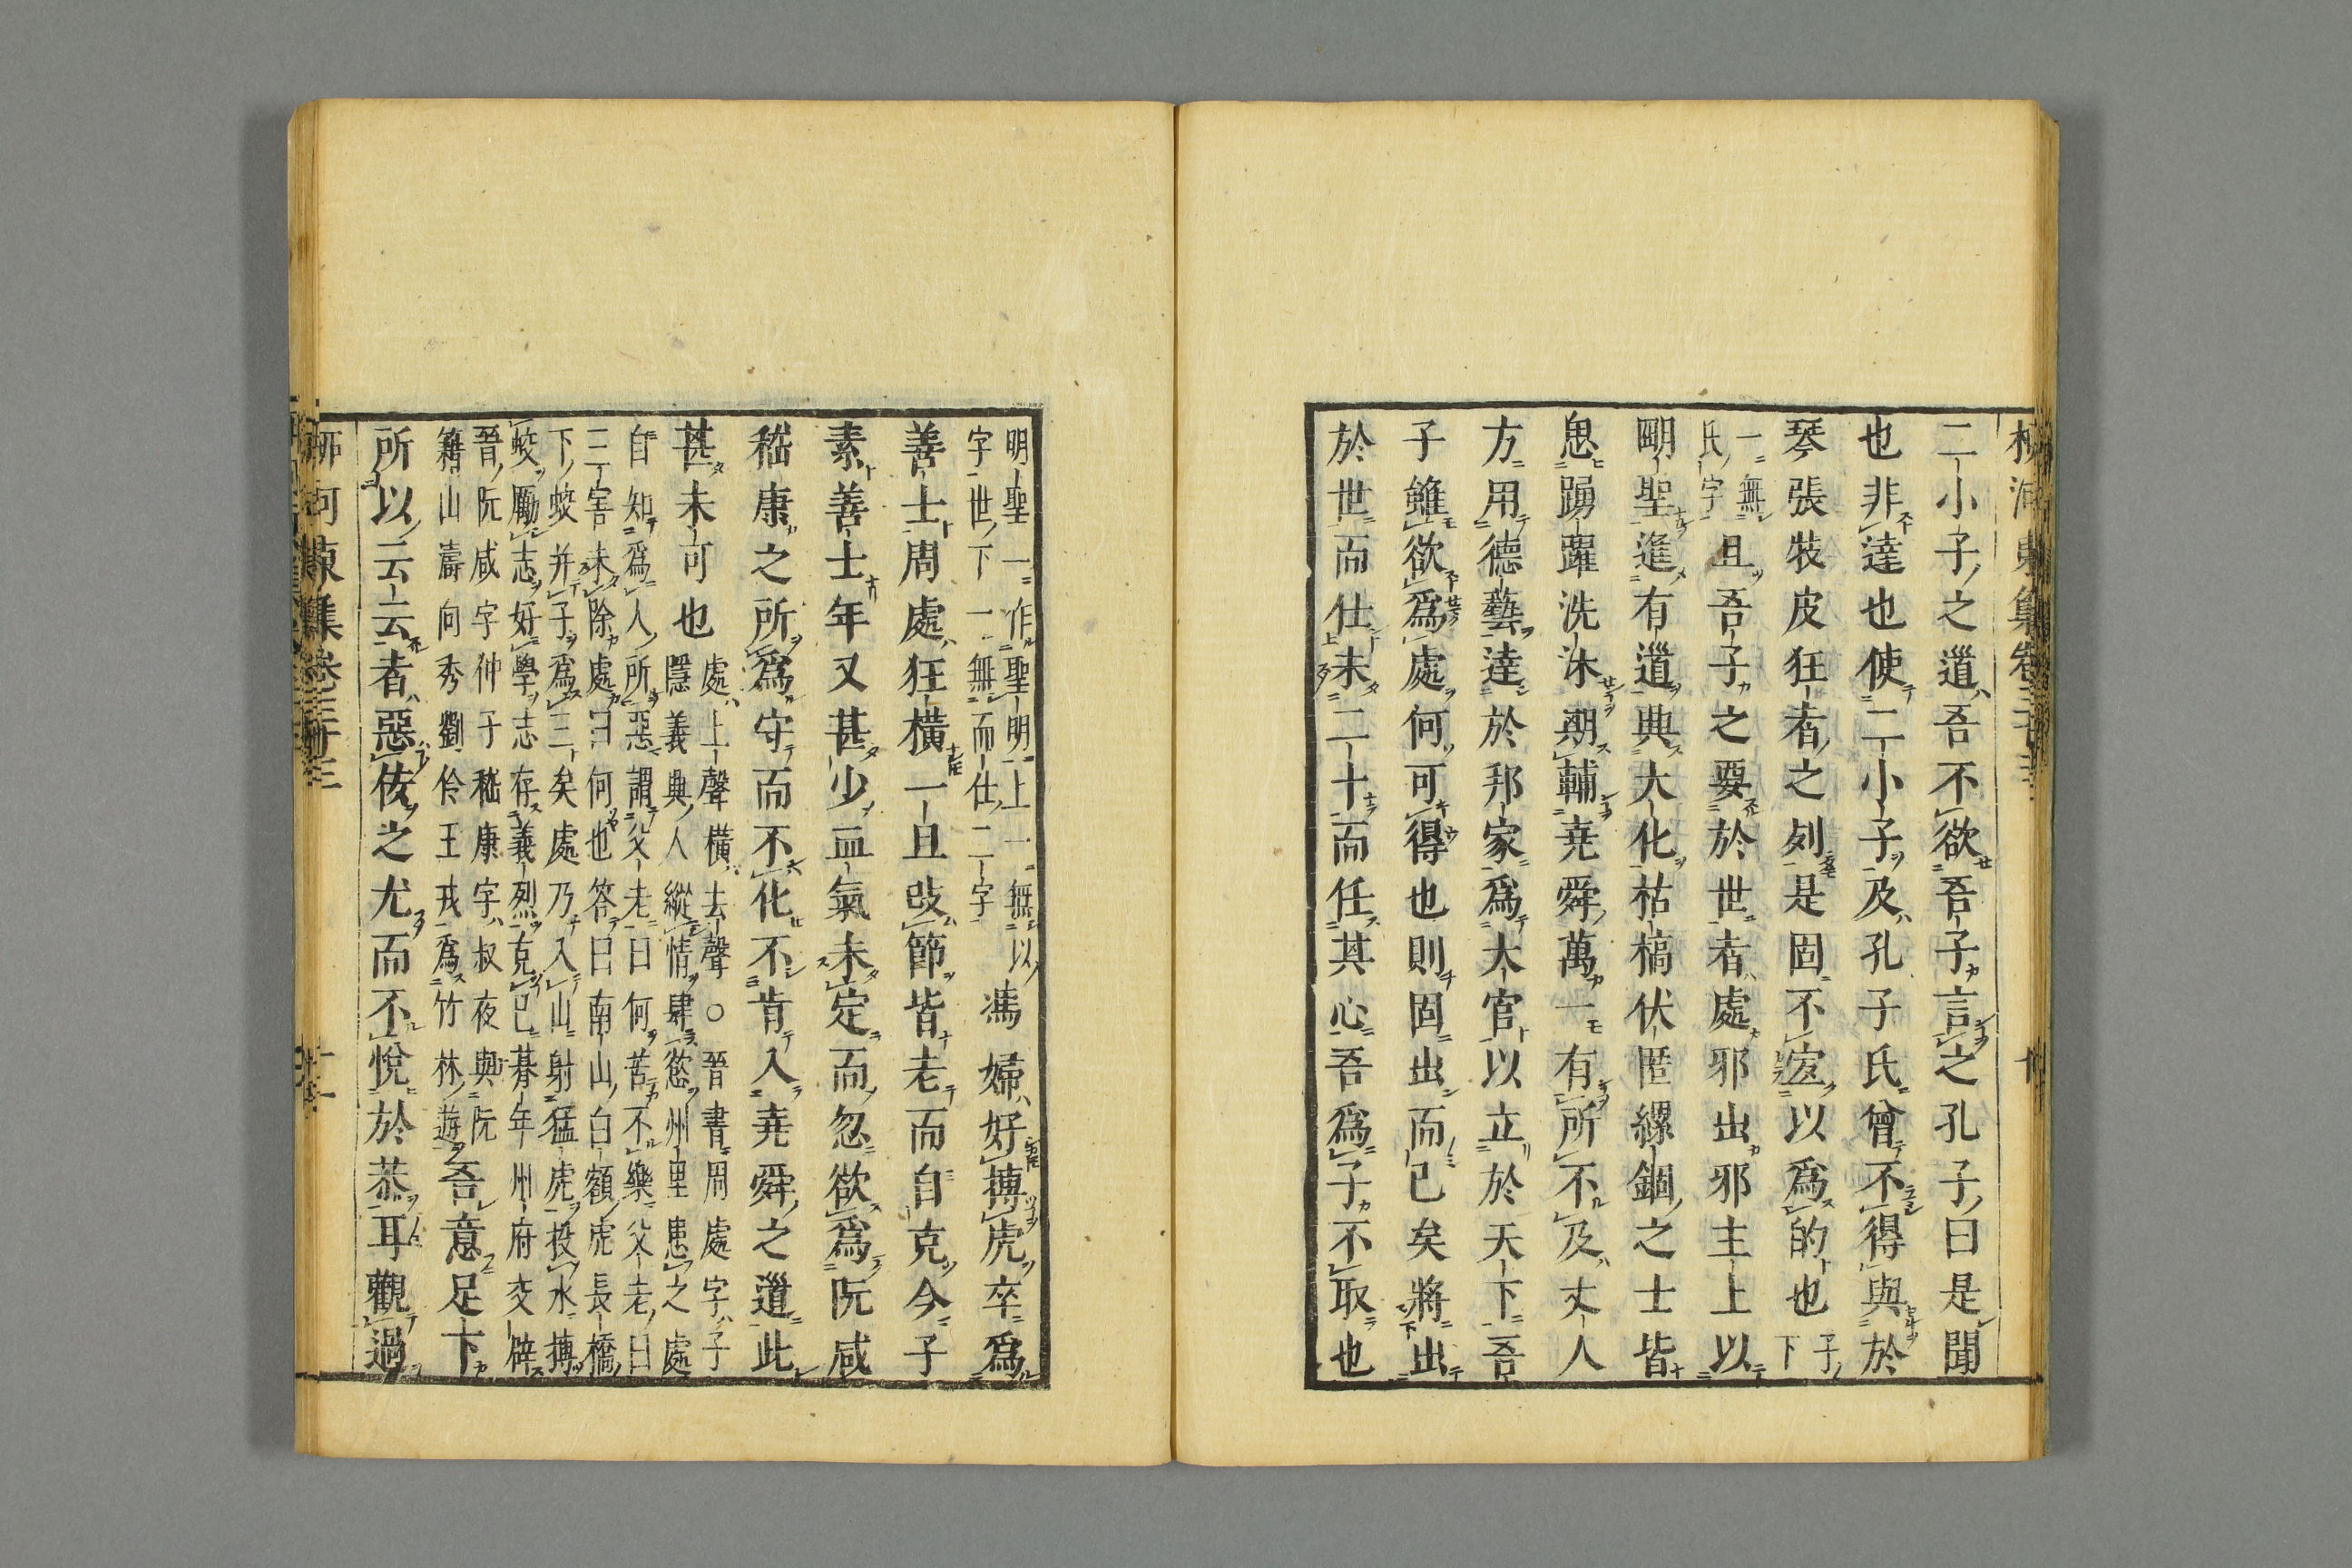 二小子之道吾不欲吾子言之孔子曰是聞
也非達也使二小子及孔子氏曾不得與於
琴張牧皮狂者之列是固不宐以爲的也 子下
一無氏字 且吾子之要於世者處邪出邪主上以
明聖進有道興大化枯槁伏匿縲錮之士皆
思踴躍洗沐期輔堯舜萬一有所不及丈人
方用德藝達於邦家爲大官以立於天下吾
子雖欲爲處何可得也則固出而已矣將出
於世而仕未二十而任其心吾爲子不取也
明聖一作聖明上一無以
字世下一無而仕二字 馮婦好搏虎卒爲
善士周處狂橫一旦改節皆老而自克今子
素善士年又甚少血氣未定而忽欲爲阮咸
嵇康之所爲守而不化不肯入堯舜之道此
甚未可也 處上聲橫去聲○晉書周處字子
隱義興人縱情肆慾州里患之處
自知爲人所惡謂父老曰何苦不樂父老曰
三害未除處曰何也答曰南山白額虎長橋
下蛟并子爲三矣處乃入山射猛虎投水搏
蛟勵志好學志存義烈克己朞年州府交辟
晉阮咸字仲子嵇康字叔夜與阮
籍山濤向秀劉伶王戎爲竹林遊 吾意足下
所以云云者惡佞之尤而不悅於恭耳觀過
柳河東集卷三十三 十一